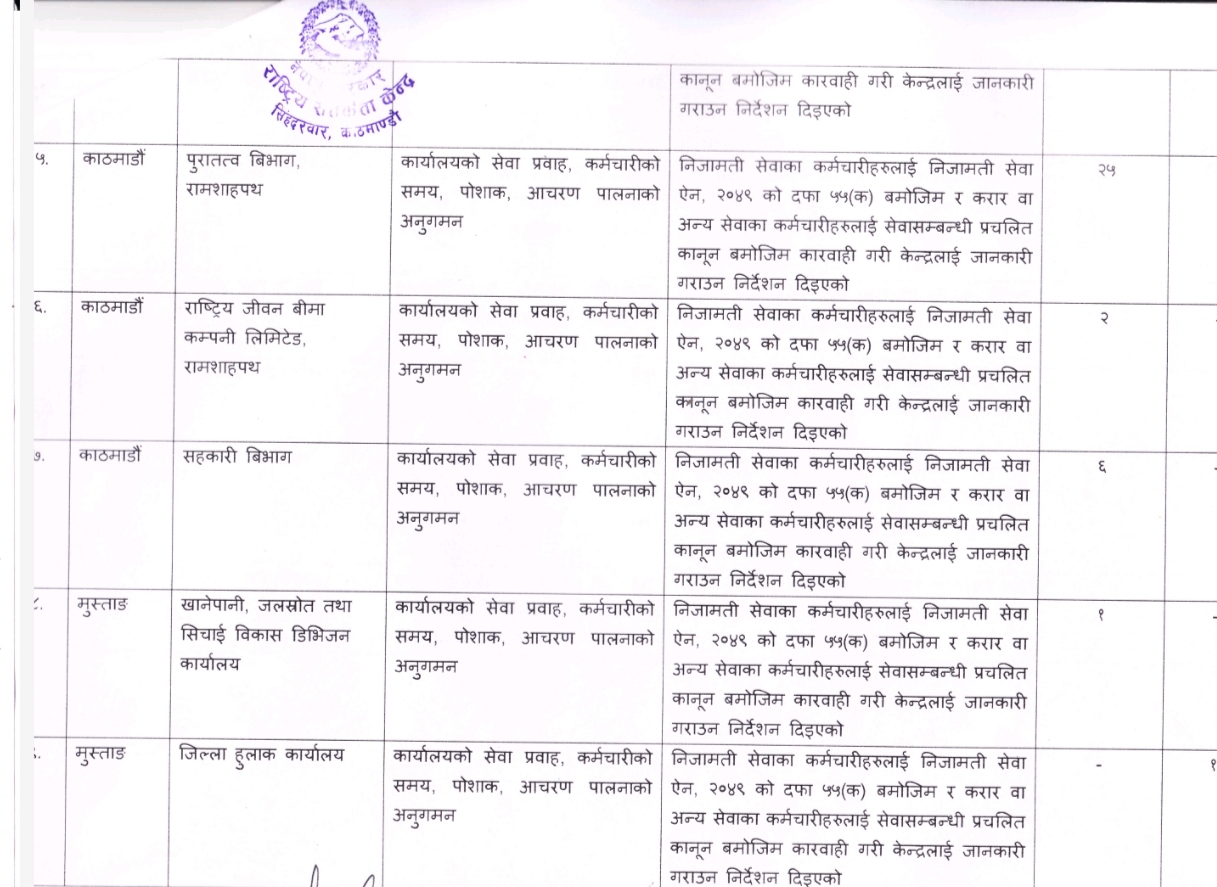 राष्ट्रिय सतर्कता केन्द्र
सिंहदरवार, काठमाण्डौ
कानून बमोजिम कारवाही गरी केन्द्रलाई जानकारी
गराउन निर्देशन दिइएको
५. काठमाडौं पुरातत्व बिभाग, कार्यालयको सेवा प्रवाह, कर्मचारीको निजामती सेवाका कर्मचारीहरुलाई निजामती सेवा २५
रामशाहपथ समय, पोशाक, आचरण पालनाको ऐन, २०४९ को दफा ५५(क) बमोजिम र करार वा
अनुगमन अन्य सेवाका कर्मचारीहरुलाई सेवासम्बन्धी प्रचलित
कानून बमोजिम कारवाही गरी केन्द्रलाई जानकारी
गराउन निर्देशन दिइएको
६. काठमाडौं राष्ट्रिय जीवन बीमा कार्यालयको सेवा प्रवाह, कर्मचारीको निजामती सेवाका कर्मचारीहरुलाई निजामती सेवा २ -
कम्पनी लिमिटेड, समय, पोशाक, आचरण पालनाको ऐन, २०४९ को दफा ५५(क) बमोजिम र करार वा
रामशाहपथ अनुगमन अन्य सेवाका कर्मचारीहरुलाई सेवासम्बन्धी प्रचलित
कानून बमोजिम कारवाही गरी केन्द्रलाई जानकारी
गराउन निर्देशन दिइएको
७. काठमाडौं सहकारी बिभाग कार्यालयको सेवा प्रवाह, कर्मचारीको निजामती सेवाका कर्मचारीहरुलाई निजामती सेवा ६ -
समय, पोशाक, आचरण पालनाको ऐन, २०४९ को दफा ५५(क) बमोजिम र करार वा
अनुगमन अन्य सेवाका कर्मचारीहरुलाई सेवासम्बन्धी प्रचलित
कानून बमोजिम कारवाही गरी केन्द्रलाई जानकारी
गराउन निर्देशन दिइएको
८. मुस्ताङ खानेपानी, जलस्रोत तथा कार्यालयको सेवा प्रवाह, कर्मचारीको निजामती सेवाका कर्मचारीहरुलाई निजामती सेवा १ -
सिचाई विकास डिभिजन समय, पोशाक, आचरण पालनाको ऐन, २०४९ को दफा ५५(क) बमोजिम र करार वा
कार्यालय अनुगमन अन्य सेवाका कर्मचारीहरुलाई सेवासम्बन्धी प्रचलित
कानून बमोजिम कारवाही गरी केन्द्रलाई जानकारी
गराउन निर्देशन दिइएको
मुस्ताङ जिल्ला हुलाक कार्यालय कार्यालयको सेवा प्रवाह, कर्मचारीको निजामती सेवाका कर्मचारीहरुलाई निजामती सेवा - १
समय, पोशाक, आचरण पालनाको ऐन, २०४९ को दफा ५५(क) बमोजिम र करार वा
अनुगमन अन्य सेवाका कर्मचारीहरुलाई सेवासम्बन्धी प्रचलित
कानून बमोजिम कारवाही गरी केन्द्रलाई जानकारी
गराउन निर्देशन दिइएको